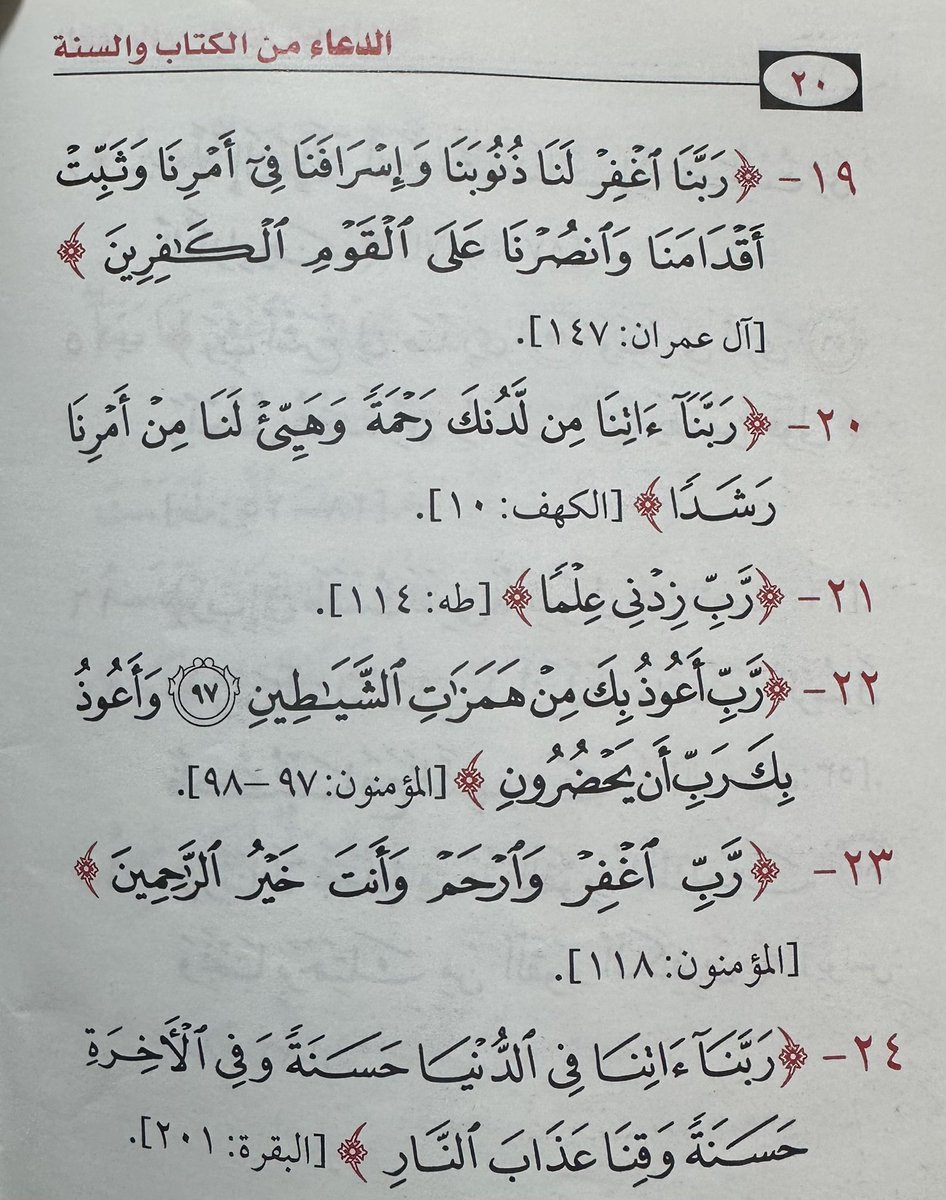 الدعاء من الكتاب والسنة
٢٠
١٩- ﴿رَبَّنَا ٱغْفِرْ لَنَا ذُنُوبَنَا وَإِسْرَافَنَا فِىٓ أَمْرِنَا وَثَبِّتْ
أَقْدَامَنَا وَٱنصُرْنَا عَلَى ٱلْقَوْمِ ٱلْكَـٰفِرِينَ ﴾
[آل عمران: ١٤٧].
٢٠- ﴿رَبَّنَآ ءَاتِنَا مِن لَّدُنكَ رَحْمَةً وَهَيِّئْ لَنَا مِنْ أَمْرِنَا
رَشَدًا ﴾ [الكهف: ١٠].
٢١- ﴿رَّبِّ زِدْنِى عِلْمًا ﴾ [طه: ١١٤].
٢٢- ﴿رَّبِّ أَعُوذُ بِكَ مِنْ هَمَزَٰتِ ٱلشَّيَـٰطِينِ ٩٧ وَأَعُوذُ
بِكَ رَبِّ أَن يَحْضُرُونِ ﴾ [المؤمنون: ٩٧-٩٨].
٢٣- ﴿رَّبِّ ٱغْفِرْ وَٱرْحَمْ وَأَنتَ خَيْرُ ٱلرَّٰحِمِينَ ﴾
[المؤمنون: ١١٨].
٢٤- ﴿رَبَّنَآ ءَاتِنَا فِى ٱلدُّنْيَا حَسَنَةً وَفِى ٱلْأَخِرَةِ
حَسَنَةً وَقِنَا عَذَابَ ٱلنَّارِ ﴾ [البقرة: ٢٠١].